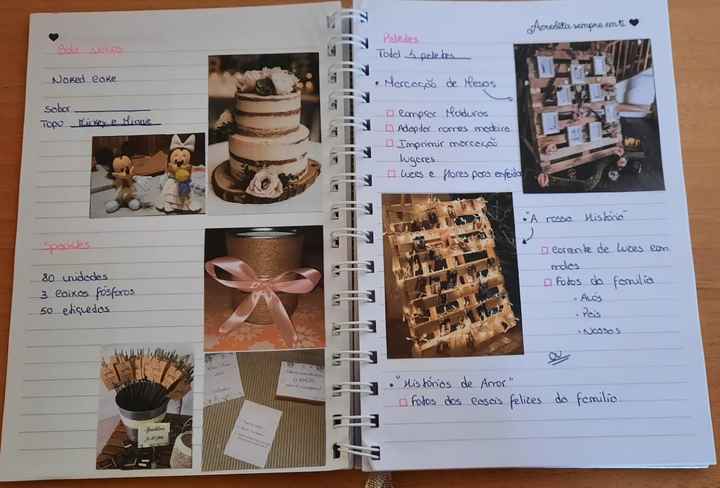 Bolo Noivos
Naked Cake
Sabor
Topo Mickey e Minnie
Sparkles
80 unidades
3 caixas fósforos
50 etiquetas
Acredita sempre em ti
Paletes
Total 5 paletes
• Marcação de Mesas
Comprar Molduras
Adaptar nomes madeira
Imprimir marcação
lugares
Luzes e flores para enfeitar
• "A nossa História"
Corrente de Luzes com
molas
Fotos da família
• Avós
• Pais
• Nossas
ou
• "Histórias de Amor"
Fotos dos casais felizes da família